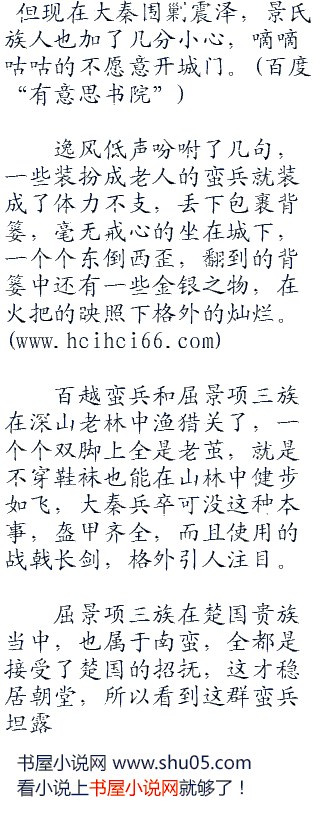 但现在大秦围剿震泽，景氏
族人也加了几分小心，嘀嘀
咕咕的不愿意开城门。(百度
“有意思书院”)
逸风低声吩咐了几句，
一些装扮成老人的蛮兵就装
成了体力不支，丢下包裹背
篓，毫无戒心的坐在城下，
一个个东倒西歪，翻到的背
篓中还有一些金银之物，在
火把的映照下格外的灿烂。
(www.hcihci66.com)
百越蛮兵和屈景项三族
在深山老林中渔猎关了，一
个个双脚上全是老茧，就是
不穿鞋袜也能在山林中健步
如飞，大秦兵卒可没这种本
事，盔甲齐全，而且使用的
战戟长剑，格外引人注目。
屈景项三族在楚国贵族
当中，也属于南蛮，全都是
接受了楚国的招抚，这才稳
居朝堂，所以看到这群蛮兵
坦露
书屋小说网 www.shu05.com
看小说上书屋小说网就够了！